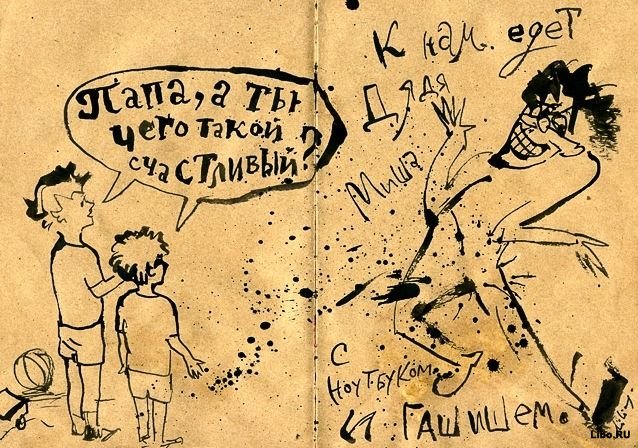 Папа, а ты
чего такой
счастливый?
К нам едет
Дядя
Миша
с
ноутбуком
и гашишем.
LiBo.RU